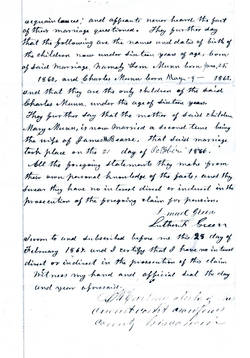 acquaintance, and affiants never heard the fact
of their marriage questioned. They further say
that the following are the names and dates of birth of
the children now under sixteen years of age, born
of said marriage namely Munn born Jan. 25.
1860, and Charles Munn born May 9 - 1862.
and that they are the only children of the said
Charles Munn, under the age of sixteen years.
They further say that the mother of said children
Mary Munn, is now married a second time being
the wife of James, that said marriage
took place on the 21 day of October 1866.
All the foregoing statements they make from
their own personal knowledge of the facts, and they
swear they have no interest direct or indirect in the
prosecution of the foregoing claim for pension.
Green
Sworn to and subscribed before me this 28 day of
February 1867 and I certify that I have no interest
direct or indirect in the prosecution of this claim
Witness my hand and official seal the day
and year aforesaid.
clerk of
circuit court
county